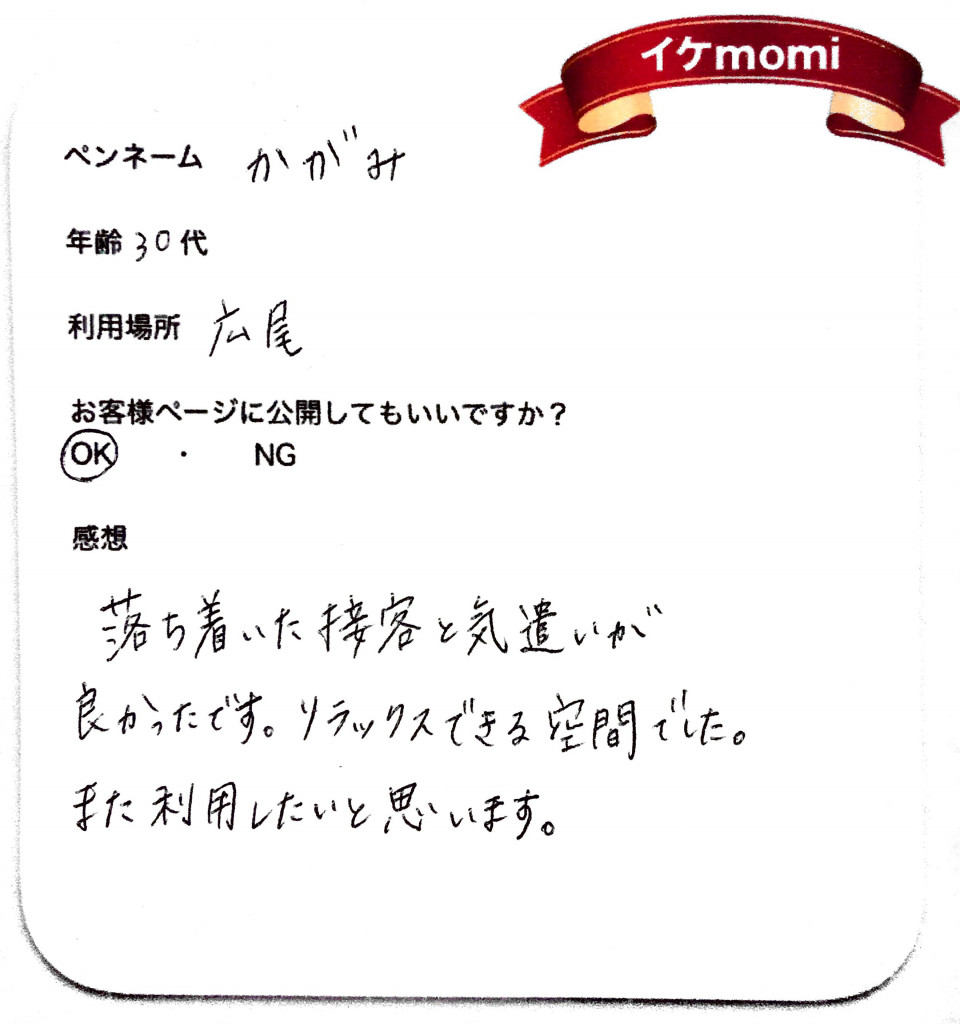 イケmomi
ペンネーム かがみ
年齢 30代
利用場所 広尾
お客様ページに公開してもいいですか？
OK ・ NG
感想
落ち着いた接客と気遣いが
良かったです。リラックスできる空間でした。
また利用したいと思います。